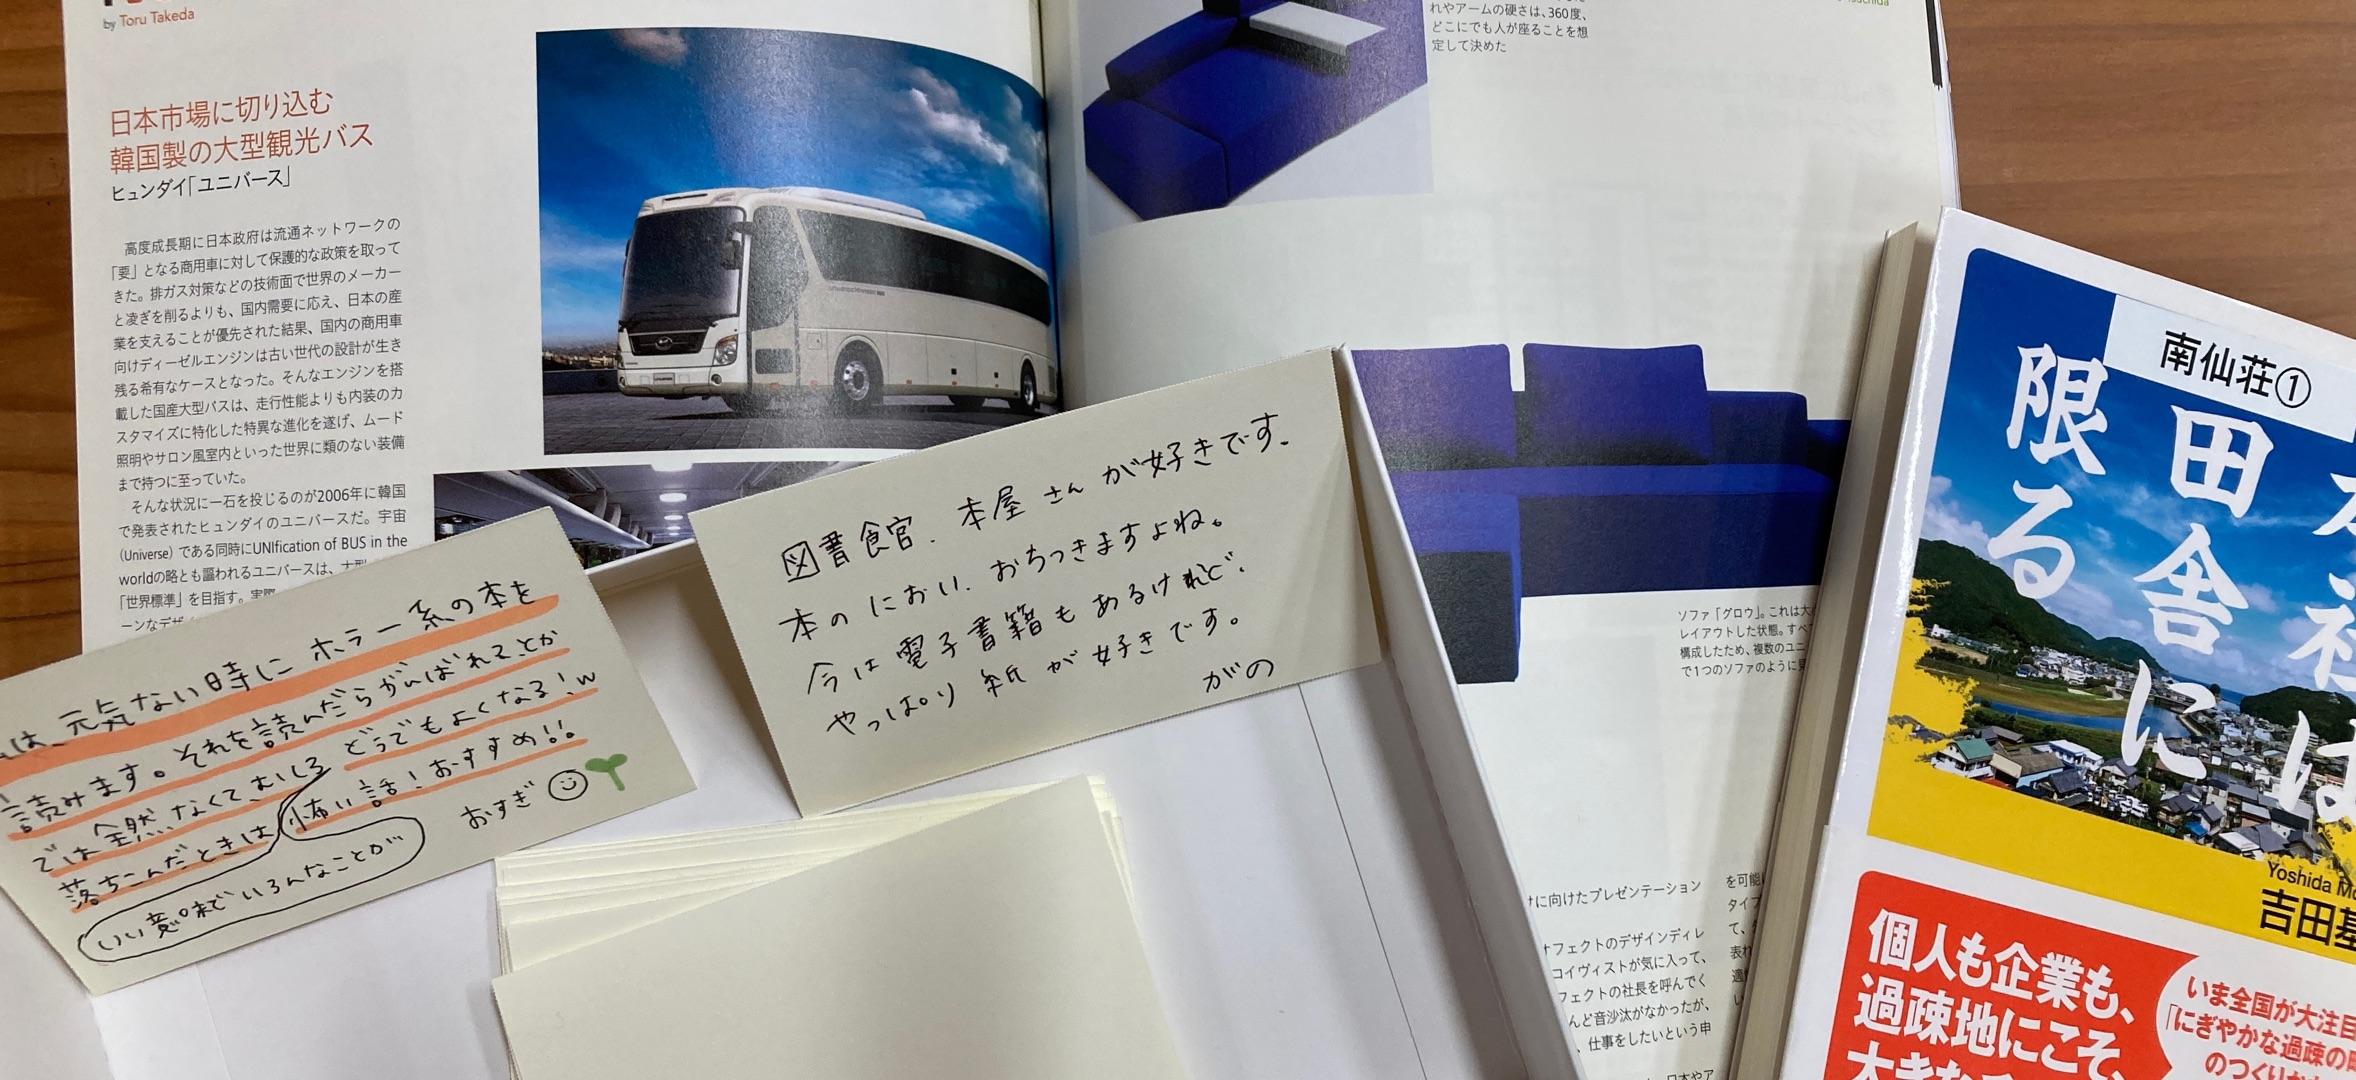 by Toru Takeda
日本市場に切り込む
韓国製の大型観光バス
ヒュンダイ「ユニバース」
高度成長期に日本政府は流通ネットワークの
「要」となる商用車に対して保護的な政策を取って
きた。排ガス対策などの技術面で世界のメーカー
と凌ぎを削るよりも、国内需要に応え、日本の産
業を支えることが優先された結果、国内の商用車
向けディーゼルエンジンは古い世代の設計が生き
残る希有なケースとなった。そんなエンジンを搭
載した国産大型バスは、走行性能よりも内装のカ
スタマイズに特化した特異な進化を遂げ、ムード
照明やサロン風室内といった世界に類のない装備
まで持つに至っていた。
そんな状況に一石を投じるのが2006年に韓国
で発表されたヒュンダイのユニバースだ。宇宙
（Universe）である同時にUNIfication of BUS in the
worldの略とも謳われるユニバースは、大型
「世界標準」を目指す。実際
ーンなデザ
れやアームの硬さは、360度、
どこにでも人が座ることを想
定して決めた
は、元気ない時にホラー系の本を
読みます。それを読んだらがんばれてとか
では全然なくて、むしろどうでもよくなる！w
落ちこんだときは怖い話！おすすめ!!
いい意味でいろんなことが
おすぎ
図書館、本屋さんが好きです。
本のにおい、おちつきますよね。
今は電子書籍もあるけれど、
やっぱり紙が好きです。
がの
ソファ「グロウ」。これは大
レイアウトした状態。すべ
構成したため、複数のユニ
で1つのソファのように見
に向けたプレゼンテーション
フェクトのデザインディレ
コイヴィストが気に入って、
フェクトの社長を呼んでく
んど音沙汰がなかったが、
、仕事をしたいという申
を可能
タイプ
南仙荘①
本社は
田舎に
限る
Yoshida Mo
吉田基
個人も企業も、
過疎地にこそ、
大きな
いま全国が大注目
「にぎやかな過疎の町
のつくりかた